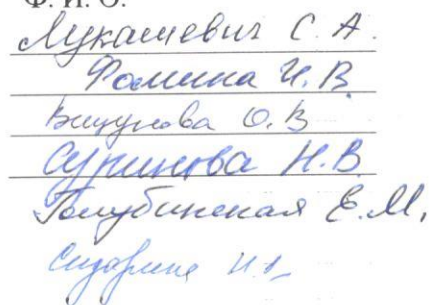 Ф. И. О.
Лукашевич С. А.
Фомина И. В.
Вицукова О. В
Суринова Н. В.
Голубинская Е. М.